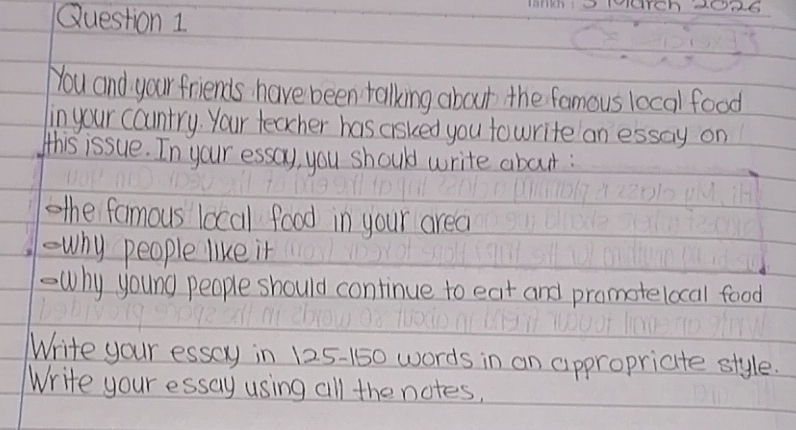 3 March 2026
Question 1
You and your friends have been talking about the famous local food
in your country. Your teacher has asked you to write an essay on
this issue. In your essay, you should write about :
-the famous local food in your area
-why people like it
-why young people should continue to eat and promote local food
Write your essay in 125-150 words in an appropriate style.
Write your essay using all the notes.